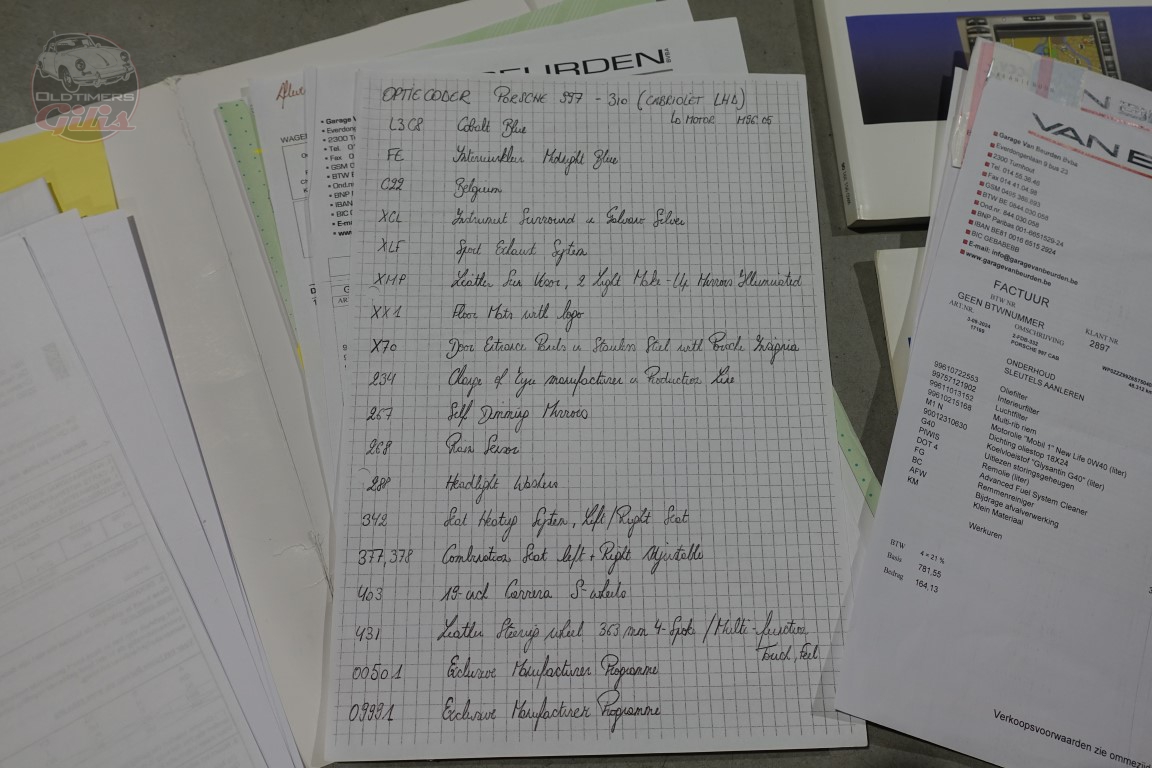 OLDTIMERS
Gilis
BEURDEN BVBA
OPTIECODER PORSCHE 997 - 310 (CABRIOLET LHD)
MOTOR M96.05
L3C8 Cobalt Blue
FE Interieurkleur Midnight Blue
C22 Belgium
XCL Instrument Surround in Galvano Silver
XLF Sport Exhaust System
XMP Leather Sun Visor, 2 Light Make-Up Mirrors Illuminated
XX1 Floor Mats with logo
X70 Door Entrance Panels in Stainless Steel with Porsche Insignia
234 Change of Tyre manufacturer in Production Line
267 Self Dimming Mirrors
268 Rain Sensor
288 Headlight Washers
342 Seat Heating System, Left/Right Seat
377,378 Combination Seat left + Right Adjustable
403 19-inch Carrera S-wheels
431 Leather Steering wheel 363 mm 4-Spoke / Multi-function
Touch, Feel
00501 Exclusive Manufacturer Programme
09991 Exclusive Manufacturer Programme
VAN B
Garage Van Beurden Bvba
Everdongenlaan 9 bus 23
2300 Turnhout
Tel. 014 55.36.46
Fax 014 41.04.98
GSM 0495 389.093
BTW BE 0844.030.058
Ond.nr. 844.030.058
BNP Paribas 001-6651529-24
IBAN BE81 0016 6515 2924
BIC GEBABEBB
E-mail: info@garagevanbeurden.be
www.garagevanbeurden.be
FACTUUR
BTW NR
GEEN BTWNUMMER
ART.NR. OMSCHRIJVING KLANT NR
2897
PORSCHE 997 CAB
ONDERHOUD
SLEUTELS AANLEREN
99610722553 Oliefilter
99757121902 Interieurfilter
99611013152 Luchtfilter
99610215168 Multi-rib riem
M1 N Motorolie "Mobil 1" New Life 0W40 (liter)
90012310630 Dichting oliestop 18X24
G40 Koelvloeistof "Glysantin G40" (liter)
PIWIS Uitlezen storingsgeheugen
DOT 4 Remolie (liter)
FG Advanced Fuel System Cleaner
BC Remmenreiniger
AFW Bijdrage afvalverwerking
KM Klein Materiaal
Werkuren
BTW 4 × 21 %
Basis 781,55
Bedrag 164,13
Verkoopsvoorwaarden zie ommezijd